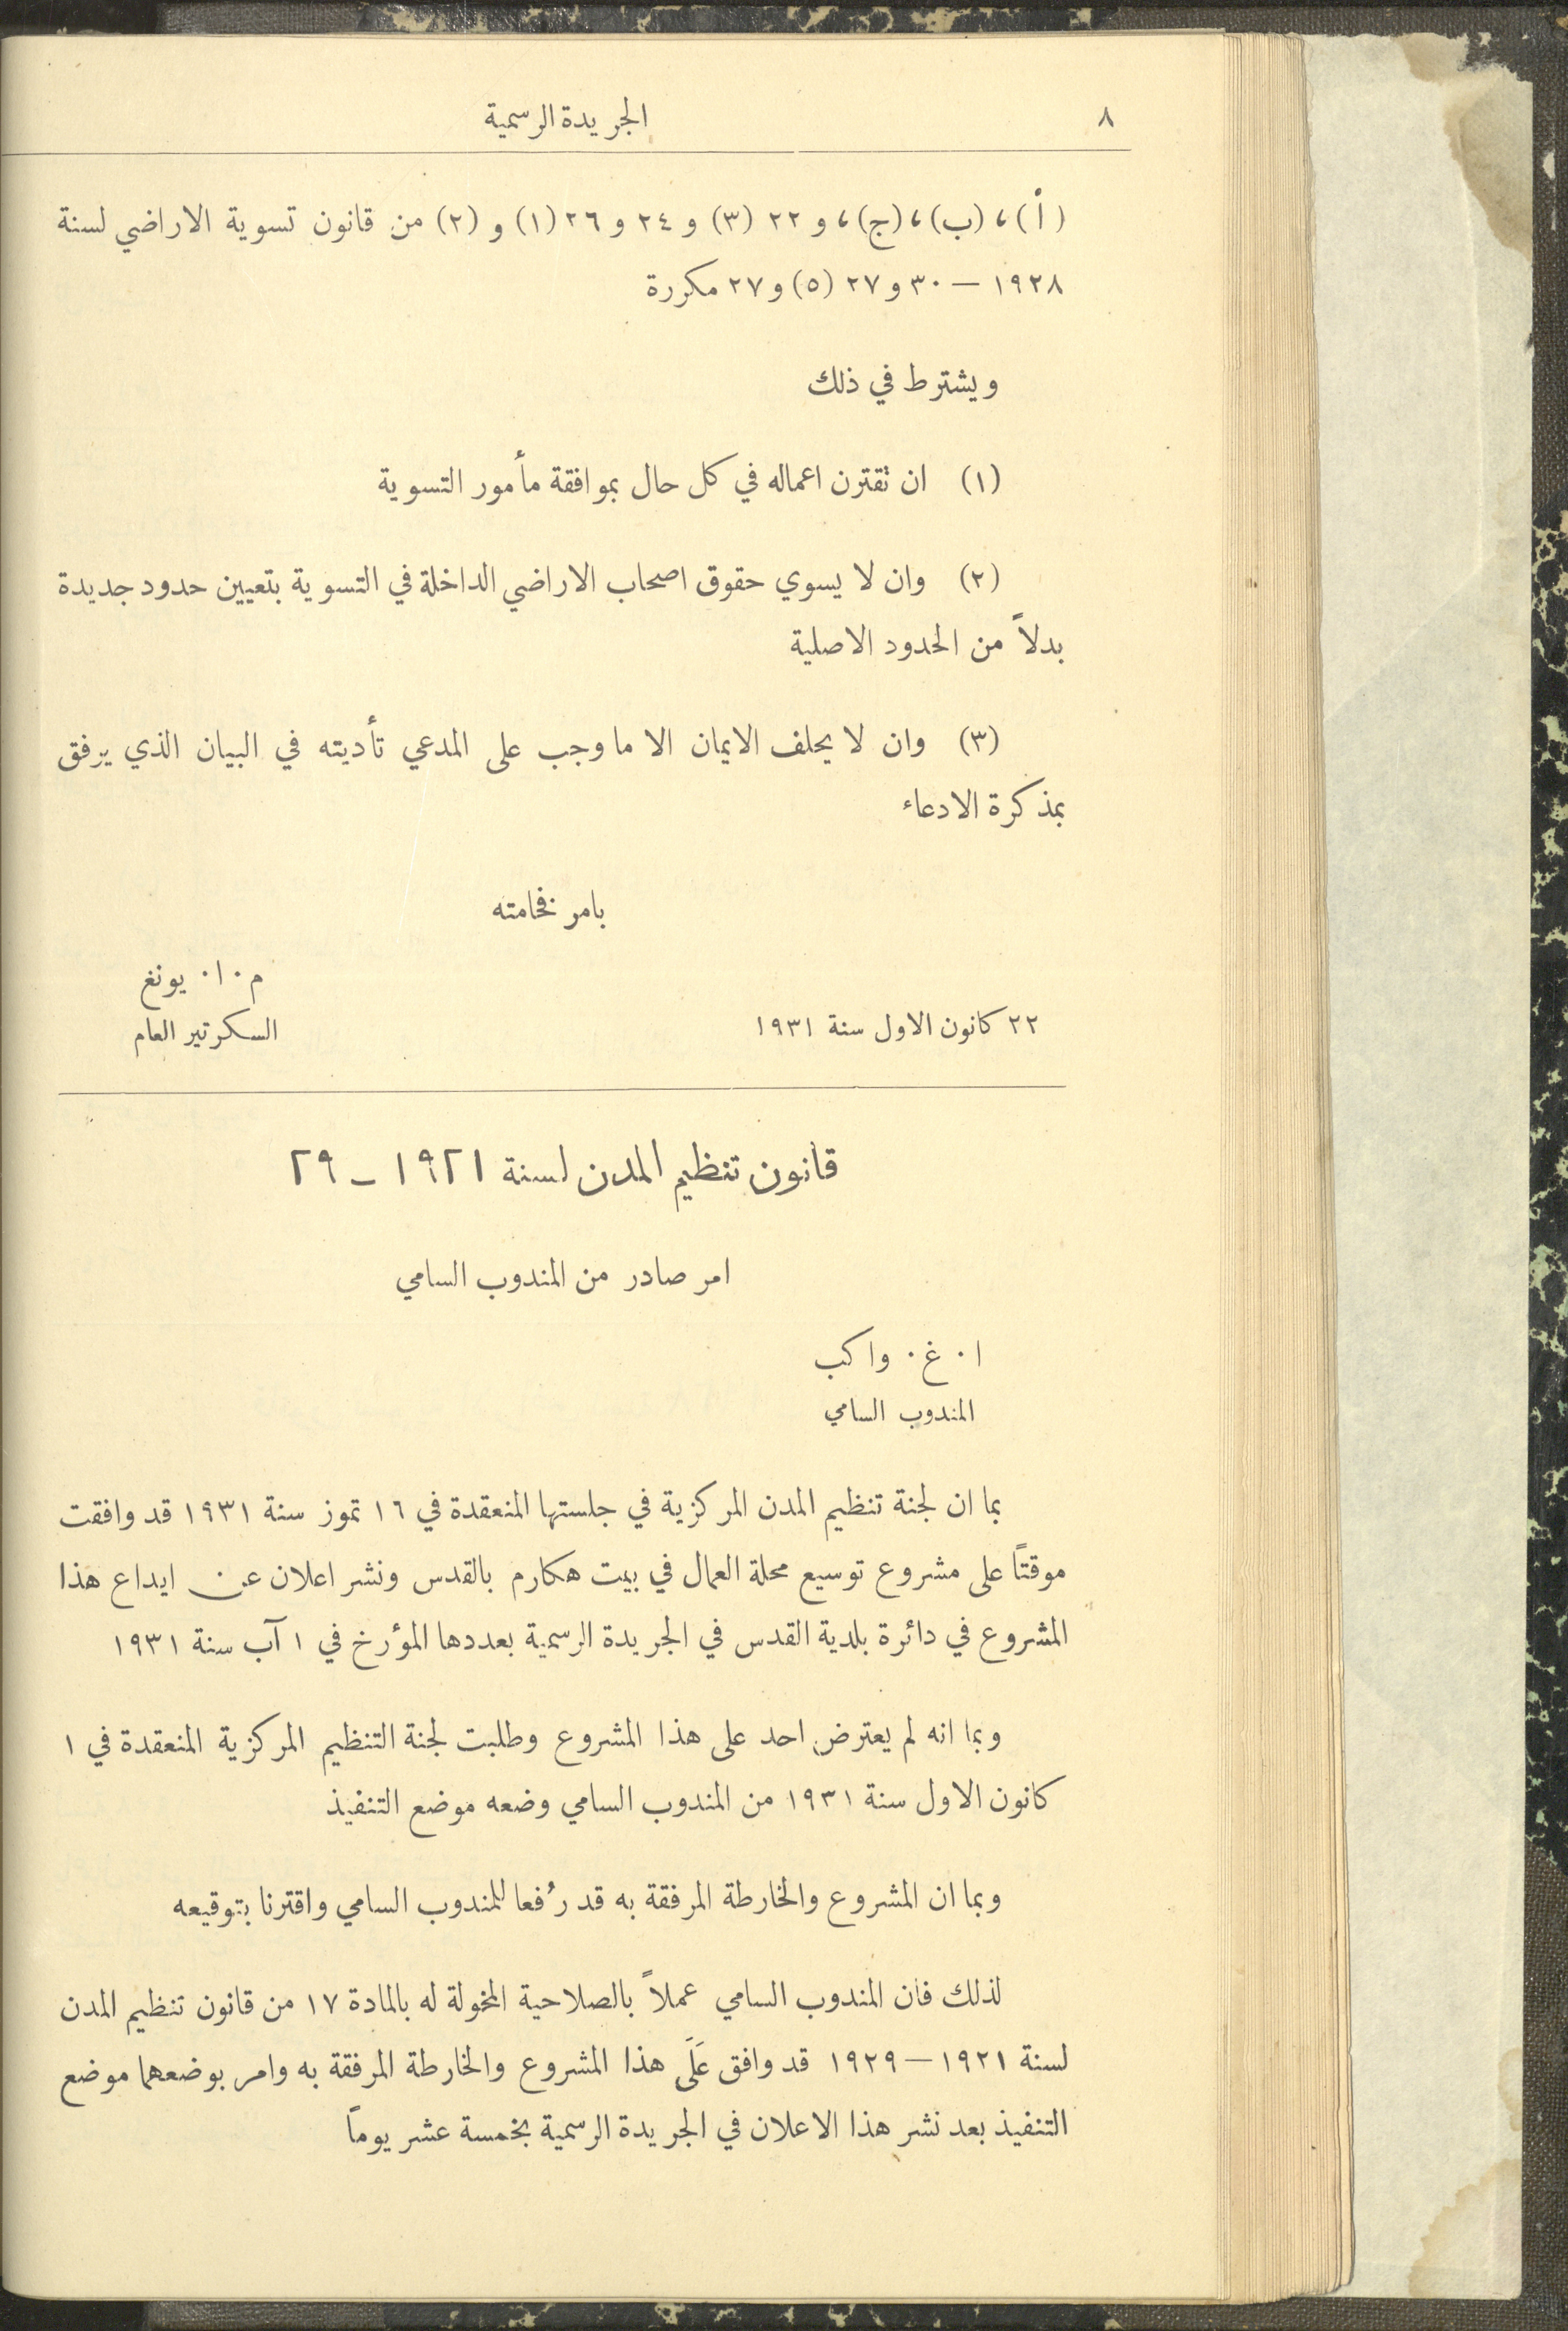 ٨
الجريدة الرسمية
(أ)، (ب)، (ج)، و ٢٢ (٣) و ٢٤ و ٢٦ (١) و (٢) من قانون تسوية الاراضي لسنة
١٩٢٨ — ٣٠ و ٢٧ (٥) و ٢٧ مكررة
ويشترط في ذلك
(١) ان تقترن اعماله في كل حال بموافقة مأمور التسوية
(٢) وان لا يسوي حقوق اصحاب الاراضي الداخلة في التسوية بتعيين حدود جديدة
بدلاً من الحدود الاصلية
(٣) وان لا يحلف الايمان الا ما وجب على المدعي تأديته في البيان الذي يرفق
بمذكرة الادعاء
بامر فخامته
م٠ا٠ يونغ
٢٢ كانون الاول سنة ١٩٣١
السكرتير العام
قانون تنظيم المدن لسنة ١٩٢١ – ٢٩
امر صادر من المندوب السامي
ا٠ غ٠ واكب
المندوب السامي
بما ان لجنة تنظيم المدن المركزية في جلستها المنعقدة في ١٦ تموز سنة ١٩٣١ قد وافقت
موقتاً على مشروع توسيع محلة العمال في بيت هكارم بالقدس ونشر اعلان عن ايداع هذا
المشروع في دائرة بلدية القدس في الجريدة الرسمية بعددها المؤرخ في ١ آب سنة ١٩٣١
وبما انه لم يعترض احد على هذا المشروع وطلبت لجنة التنظيم المركزية المنعقدة في ١
كانون الاول سنة ١٩٣١ من المندوب السامي وضعه موضع التنفيذ
وبما ان المشروع والخارطة المرفقة به قد رُفعا للمندوب السامي واقترنا بتوقيعه
لذلك فان المندوب السامي عملاً بالصلاحية المخولة له بالمادة ١٧ من قانون تنظيم المدن
لسنة ١٩٢١ — ١٩٢٩ قد وافق عَلَى هذا المشروع والخارطة المرفقة به وامر بوضعهما موضع
التنفيذ بعد نشر هذا الاعلان في الجريدة الرسمية بخمسة عشر يوماً